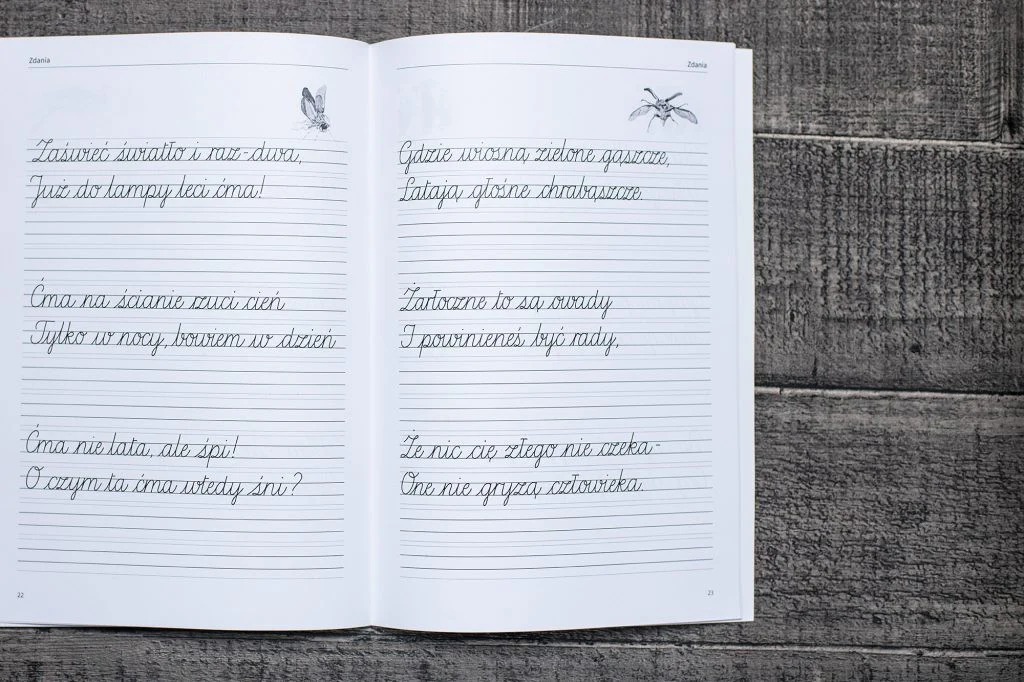 Zdania
Zaświeć światło i raz-dwa,
Już do lampy leci ćma!
Ćma na ścianie rzuci cień
Tylko w nocy, bowiem w dzień
Ćma nie lata, ale śpi!
O czym ta ćma wtedy śni?
22
Zdania
Gdzie wiosną zielone gąszcze,
Latają głośne chrabąszcze.
Żarłoczne to są owady
I powinieneś być rady,
Że nic cię złego nie czeka-
One nie gryzą człowieka.
23